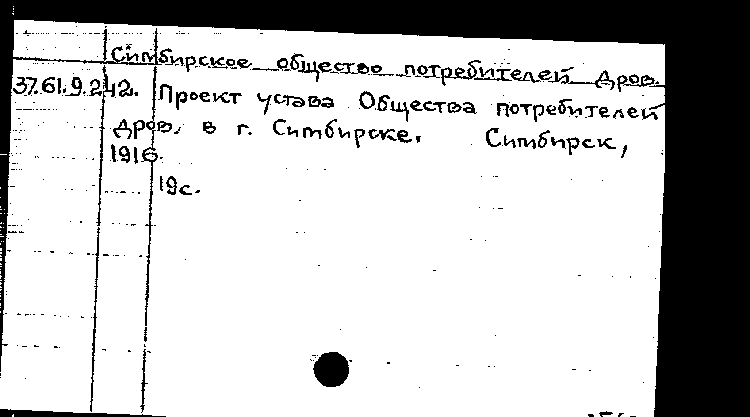 Симбирское общество потребителей дров.
37.61.9.242. Проект устава Общества потребителей
дров. в г. Симбирске. Симбирск,
1916.
19с.